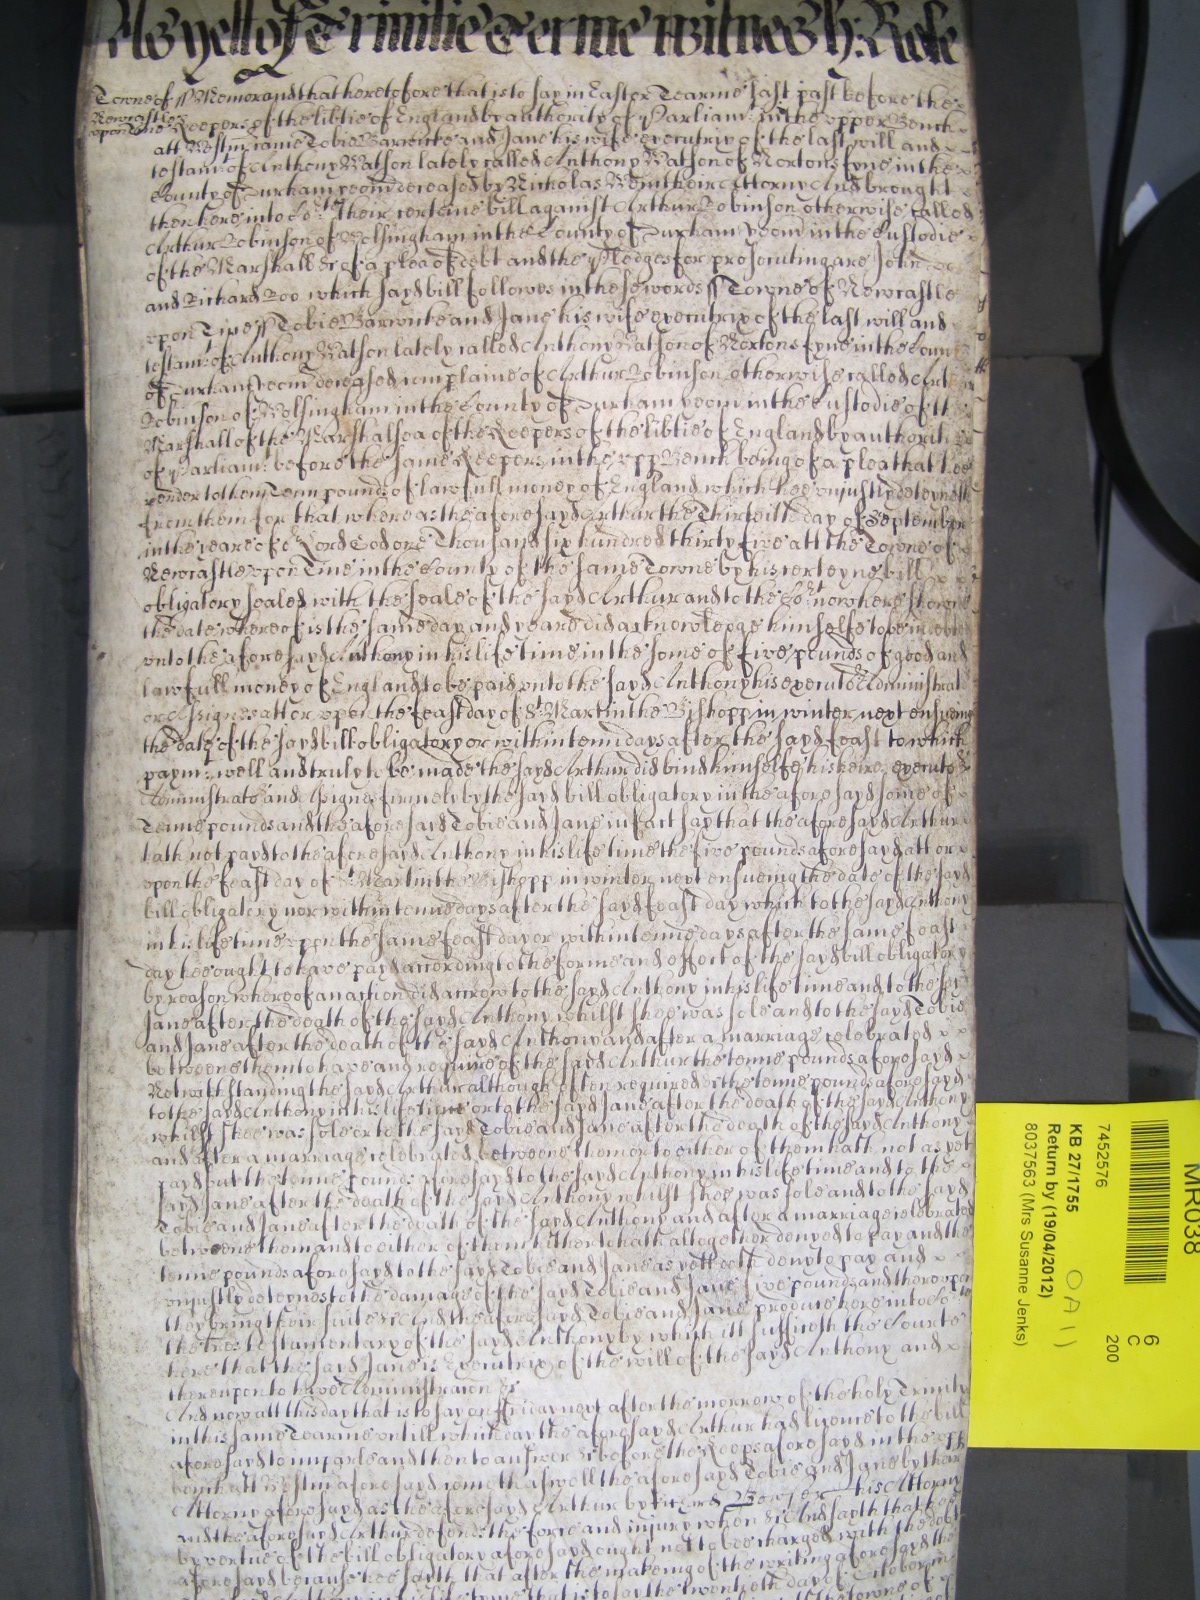 As yett of Trinitie Terme witnes h: Rolle
Towne of ss Memorand that heretofore that is to say in Easter Tearme last past before the
Newcastle
upon Tine Keepers of the libtie of England by authority of Parliamt in the upper Bench
att Westm came Tobie Barwicke and Jane his wife executrix of the last will and
testamt of Anthony Watson lately called Anthony Watson of Nortons fyne in the
County of Durham yeom deceased by Nicholas their Attorny And brought
then here into Cort their certeine bill against Arthur Robinson otherwise called
Arthur Robinson of Wolsingham in the County of Durham yeom in the Custodie
of the Marshall &c of a plea of debt and the Pledges for prosecuting are John
and Richard Roo which sayd bill followes in these words ss Towne of Newcastle
upon Tine ss Tobie Barwicke and Jane his wife executrix of the last will and
testamt of Anthony Watson lately called Anthony Watson of Nortons fyne in the County
of Durham yeom deceased complaine of Arthur Robinson otherwise called Arth
Robinson of Wolsingham in the County of Durham yeom in the Custodie of th
Marshall of the Marshalsea of the Keepers of the libtie of England by authoriti
of Parliamt before the same Keepers in the upp Bench being of a plea that hee
render to them Tenn pounds of lawfull money of England which hee unjustly deteyneth
from them for that whereas the aforesayd Arthur the Thirteith day of September
in the yeare of or Lord God one Thousand six hundred thirty five att the Towne of
Newcastle upon Tine in the County of the same Towne by his certeyne bill
obligatory sealed with the seale of the sayd Arthur and to the Cort now here showne
the date whereof is the same day and yeare did acknowledge himselfe to be indebted
unto the aforesayd Anthony in his life time in the some of five pounds of good and
lawfull money of England to be paid unto the sayd Anthony his executors Administrato
or Assignes att or upon the feast day of St Martin the Bishopp in winter next ensueing
the date of the sayd bill obligatory or within tenn days after the sayd feast to which
paymt well and truly to be made the sayd Arthur did bind himselfe his heires executo
Administrato and Assignes firmely by the sayd bill obligatory in the aforesayd some of
Tenne pounds and the aforesayd Tobie and Jane in fact say that the aforesayd Arthur
hath not payd to the aforesayd Anthony in his life time the five pounds aforesayd att or
upon the feast day of St Martin the Bishopp in winter next ensueing the date of the sayd
bill obligatory nor within tenne dayes after the sayd feast day which to the sayd Anthony
in his life time upon the same feast day or within tenne days after the same feast
day hee ought to have payd according to the forme and effect of the sayd bill obligatory
by reason whereof an action did accrew to the sayd Anthony in his life time and to the sayd
Jane after the death of the sayd Anthony whilst shee was sole and to the sayd Tobie
and Jane after the death of the sayd Anthony and after a marriage celebrated
betweene them to have and require of the sayd Arthur the tenne pounds aforesayd
Notwithstanding the sayd Arthur although often required &c the tenne pounds aforesayd
to the sayd Anthony in his life time or to the sayd Jane after the death of the sayd Anthony
whilst shee was sole or to the sayd Tobie and Jane after the death of the sayd Anthony
and after a marriage celebrated betweene them or to either of them hath not as yet
payd but the tenne pounds aforesayd to the sayd Anthony in his life time and to the
sayd Jane after the death of the sayd Anthony whilst shee was sole and to the sayd
Tobie and Jane after the death of the sayd Anthony and after a marriage celebrated
betweene them and to either of them hitherto hath altogether denyed to pay and the
tenne pounds aforesayd to the sayd Tobie and Jane as yett doth deny to pay and
unjustly deteynes to the damage of the sayd Tobie and Jane five pounds and thereupon
they bring their suite &c And the aforesayd Tobie and Jane produce here into Cort
the lres testamentary of the sayd Anthony by which itt sufficeth the Courte
here that the sayd Jane is Executrix of the will of the sayd Anthony and
thereupon to have Administracon &c
And now att this day that is to say on Friday next after the morrow of the holy Trinity
in this same Tearme untill which day the aforesayd Arthur had licence to the bill
aforesayd to imparle and then to answer &c before the Keeps aforesayd in the upp
bench att Westm aforesayd cometh aswell the aforesayd Tobie and Jane by their
Attorny aforesayd as the aforesayd Arthur by Bowyer his Attorny
and the aforesayd Arthur defends the force and injury when &c And sayth that hee
by vertue of the bill obligatory aforesayd ought not to bee charged with the debt
aforesayd because hee sayth that after the makeing of the writing aforesayd
that is to say the twentieth day of October in
MR038
6
C
200
7452576
KB 27/1755
OA 1)
Return by (19/04/2012)
8037563 (Mrs Susanne Jenks)